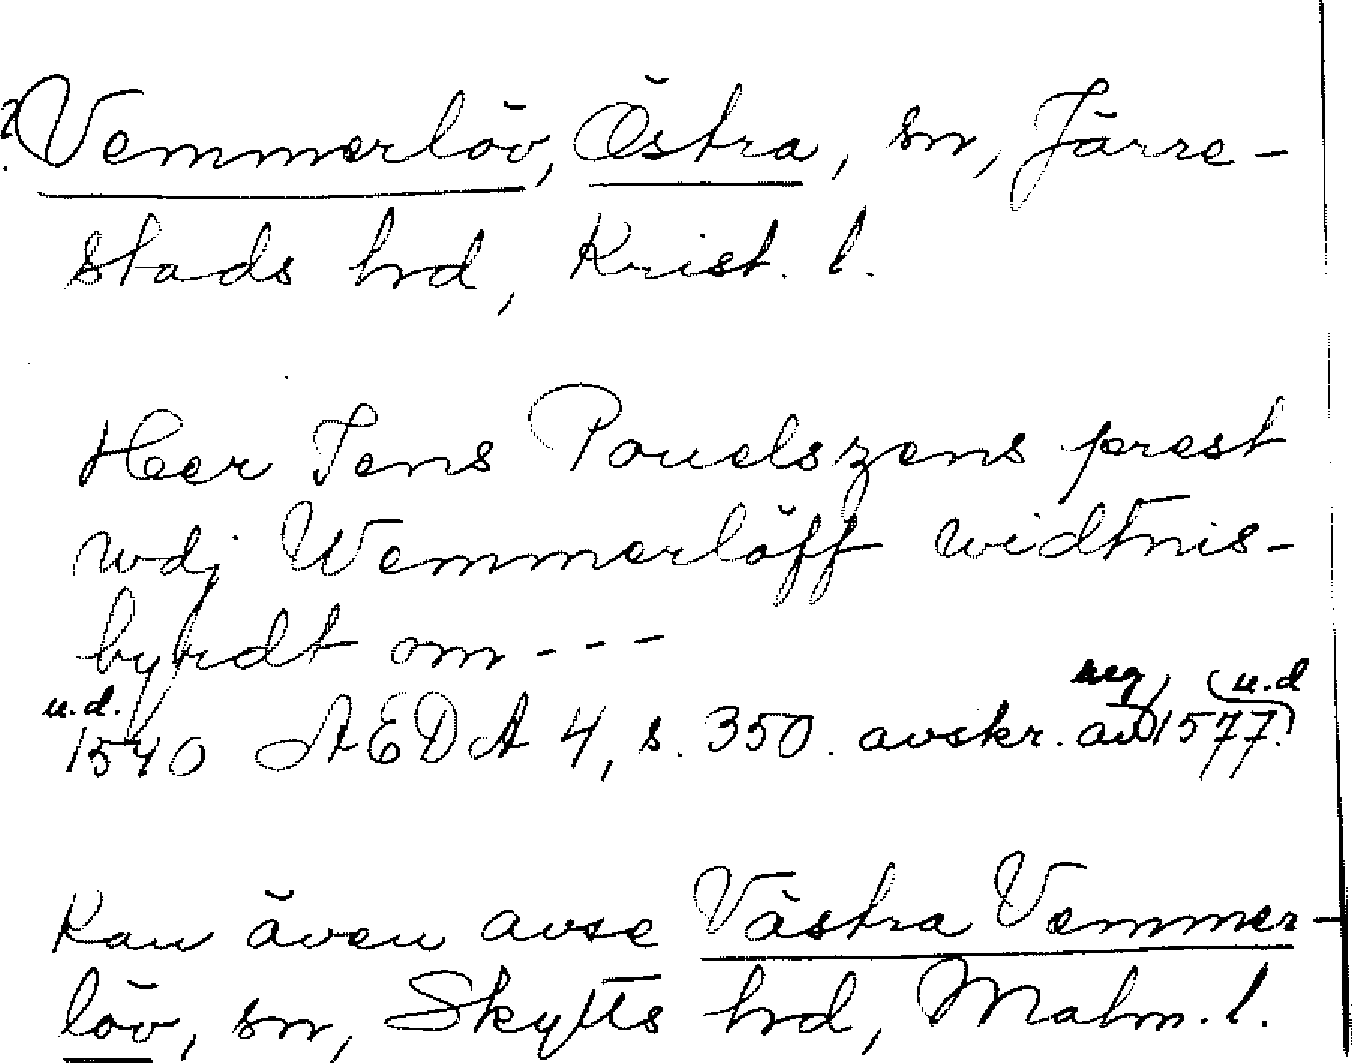 ? Vemmerlöv, Östra, sn, Järre-
stads hrd, Krist. l.
Her Jens Pouelszens prest
wdj Wemmerlöff widtnis-
byrdt om ---
u.d. reg. (u.d
1540 AEDA 4, s. 350. avskr. av 1577.)
Kan även avse Västra Vemmer-
löv, sn, Skytts hrd, Malm. l.